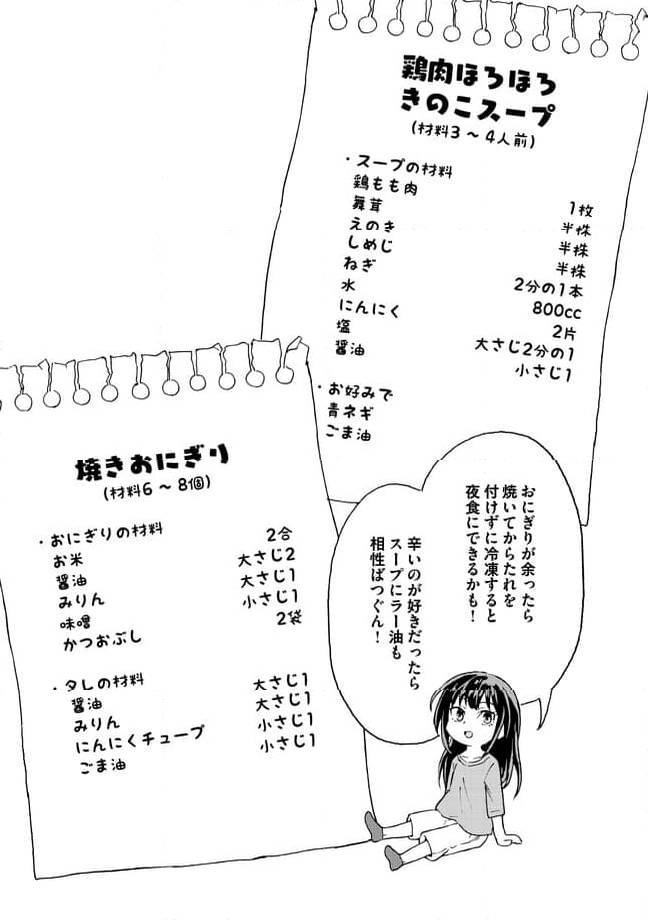 鶏肉ほろほろ
きのこスープ
(材料3～4人前)
・スープの材料
鶏もも肉 1枚
舞茸 半株
えのき 半株
しめじ 半株
ねぎ 2分の1本
水 800cc
にんにく 2片
塩 大さじ2分の1
醤油 小さじ1
・お好みで
青ネギ
ごま油
焼きおにぎり
(材料6～8個)
・おにぎりの材料
お米 2合
醤油 大さじ2
みりん 大さじ1
味噌 小さじ1
かつおぶし 2袋
・タレの材料
醤油 大さじ1
みりん 大さじ1
にんにくチューブ 小さじ1
ごま油 小さじ1
おにぎりが余ったら
焼いてからたれを
付けずに冷凍すると
夜食にできるかも！
辛いのが好きだったら
スープにラー油も
相性ばつぐん！